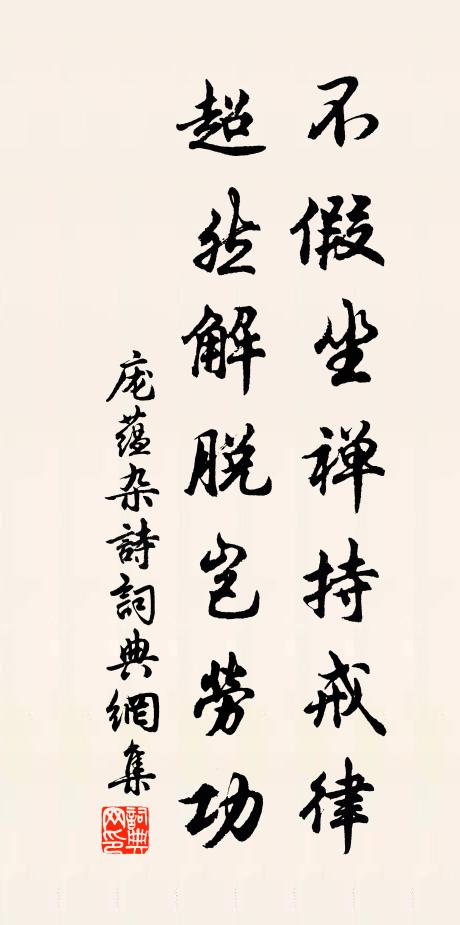 不假坐禅持戒律
超然解脱岂劳功
庞蕴杂詩詞典網集
詞典网印